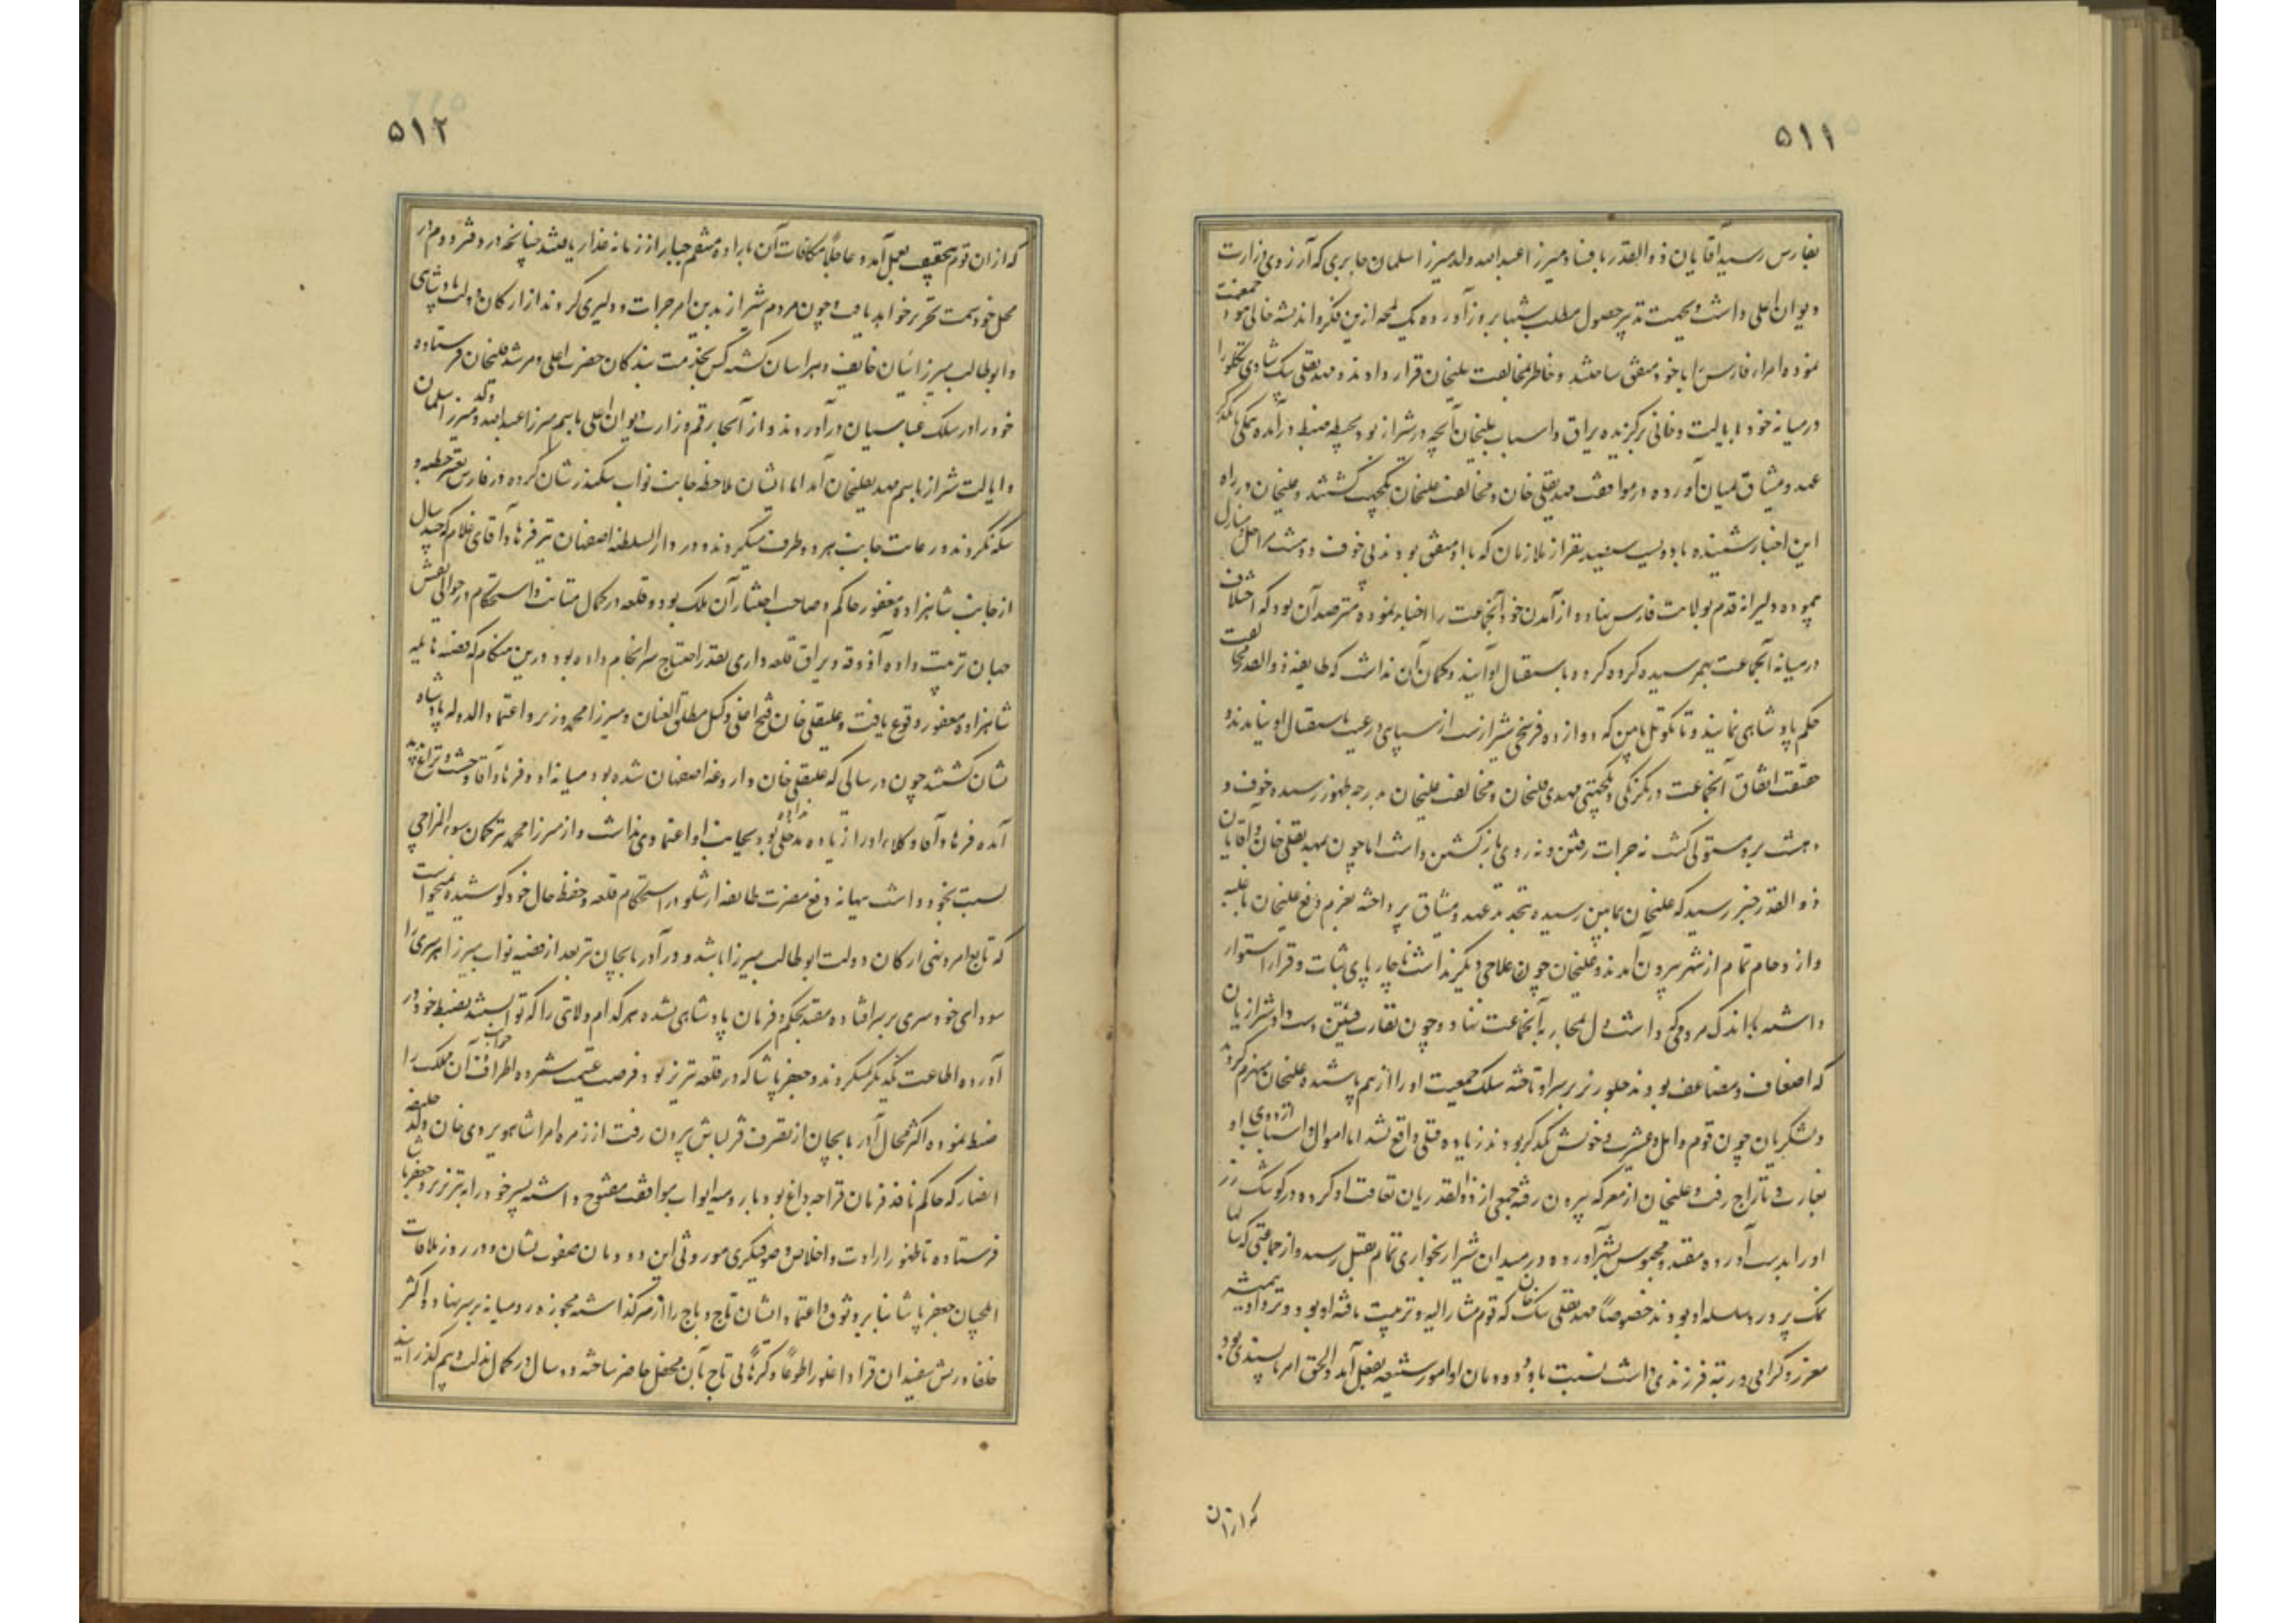 ۵۱۱
بفارس رسید آقایان ذوالقدر بافساد میرزا عبدالله ولد میرزا سلمان جابری که آرزوی وزارت
دیوان اعلی داشت و بجهت تدبیر حصول مطلب شبها بروز آورده یک لمحه ازین فکر و اندیشه خالی نبود جمعیت
نموده امراء فارس را با خود متفق ساختند و خاطر بمخالفت علیخان قرار دادند و مهدیقلی بیک شادی تکلو را
در میانه خود بایالت و خانی برگزیده یراق و اسباب علیخان آنچه در شیراز بود بحیطه ضبط درآمده همگی با یکدیگر
عهد و میثاق بمیان آورده در موافقت مهدیقلی خان و مخالفت علیخان یکجهت گشتند و علیخان در راه
این اخبار شنیده با دویست سیصد نفر از ملازمان که با او متفق بودند بی خوف و دهشت مراحل و منازل
پیموده دلیرانه قدم بولایت فارس نهاده از آمدن خود آنجماعت را اخبار نموده مترصد آن بود که اختلاف
در میانه آنجماعت بهم رسیده گروه گروه باستقبال او آیند و گمان آن نداشت که طایفه ذوالقدر مخالفت
حکم پادشاهی نمایند و تا بکوتل مایین که دوازده فرسخی شیراز است از سپاهی و رعیت باستقبال او نیامدند و
حقیقت اتفاق آنجماعت در یکرنگی و یکجهتی مهدی قلیخان و مخالفت علیخان بدرجه ظهور رسیده خوف و
دهشت برو مستولی گشت نه جرات رفتن و نه روی بازگشتن داشت اما چون بمهدیقلی خان و آقایان
ذوالقدر خبر رسید که علیخان بمایین رسیده تجدید عهد و میثاق پرداخته بعزم دفع علیخان با غلبه
و ازدحام تمام از شهر بیرون آمدند و علیخان چون علاجی دیگر نداشت ناچار پای ثبات و قرار استوار
داشته با اندک مردمی که داشت دل بمحاربه آنجماعت نهاد و چون تقارب فئتین دست داد شیرازیان
که اضعاف و مضاعف بودند جلوریز بر سر او تاخته سلک جمعیت او را از هم پاشیده علیخان منهزم گردید
و لشکریان چون قوم و اهل و عشیرت و خویش یکدیگر بودند زیاده قتلی واقع نشد اما اموال و اسباب اردوی او
بغارت و تاراج رفت و علیخان از معرکه بیرون رفته جمعی از ذوالقدریان تعاقب او کرده در کوشک زر
او را بدست آورده مقید و محبوس بشهر آورده در میدان شیراز بخواری تمام بقتل رسید و از جماعتی که سالها
نمک پرورد سلسله او بودند خصوصاً مهدیقلی بیک خان که قوم مشارالیه و تربیت یافته او بود و نزد او همیشه
معزز و گرامی و رتبه فرزندی داشت نسبت باو و دودمان او امور شنیعه بفعل آمد والحق امر ناپسندی بود
که ازان
۵۱۲
که ازان قوم بتحقیق بعمل آمد و عاجلاً مکافات آن باراده منتقم جبار از زمانه غدار یافتند چنانچه در دفتر دوم در
محل خود سمت تحریر خواهد یافت و چون مردم شیراز بدین امر جرات و دلیری کردند از ارکان دولت پادشاهی
و ابوطالب میرزائیان خایف و هراسان گشته کس بخدمت بندگان حضرت اعلی و مرشد قلیخان فرستاده
خود را در سلک عباسیان درآوردند و از آنجا رقم وزارت دیوان اعلی باسم میرزا عبدالله ولد میرزا سلمان
و ایالت شیراز باسم مهدیقلیخان آمد اما ایشان ملاحظه جانب نواب سکندر شان کرده در فارس تغییر خطبه و
سکه نکردند و رعایت جانب هر دو طرف میکردند و در دارالسلطنه اصفهان نیز فرهاد آقای غلام که چند سال
از جانب شاهزاده مغفور حاکم و صاحب اختیار آن ملک بود و قلعه در کمال متانت و استحکام در حوالی نقش
جهان ترتیب داده آذوقه و یراق قلعه داری بقدر احتیاج سرانجام داده بود درین هنگام که قضیه هایله
شاهزاده مغفور وقوع یافت و علیقلی خان فتح اغلی وکیل مطلق العنان و میرزا محمد وزیر و اعتماد الدوله پادشاه
نشان گشتند چون در سالی که علیقلی خان داروغه اصفهان شده بود میانه او و فرهاد آقا وحشت و نزاع پدید
آمده فرهاد آقا وکلاء او را زیاده مدخلی نداده بود بجانب او اعتمادی نداشت و از میرزا محمد نیز گمان سوء المزاجی
نسبت بخود داشت ببهانه دفع مضرت طایفه ارشلو در استحکام قلعه و حفظ حال خود کوشیده نمیخواست
که تابع امر و نهی ارکان دولت ابوطالب میرزا باشد و در آذربایجان نیز بعد از قضیه نواب میرزا هر سری را
سودای خودسری بر سر افتاده مقید بحکم و فرمان پادشاهی نشده هر کدام ولایتی را که توانستند بضبط خود در
آورده اطاعت یکدیگر نمیکردند و جعفر پاشا که در قلعه تبریز بود فرصت غنیمت شمرده اطراف و جوانب آن ملک را
ضبط نموده اکثر محال آذربایجان از تصرف قزلباش بیرون رفت از زمره امرا شاهویردی خان ولد خلیفه
انصار که حاکم نافذ فرمان قراجه داغ بود با رومیه ابواب موافقت مفتوح داشته پسر خود را به تبریز نزد جعفر پاشا
فرستاده تا ظهور ارادت و اخلاص و صوفیگری موروثی این دودمان صفوت نشان و در روز ملاقات
ایلچیان جعفر پاشا بنا بر وثوق و اعتماد ایشان تاج وهاج را از سر گذاشته مجوزه رومیانه بر سر نهاد و اکثر
خلفا و ریش سفیدان قراداغلو را طوعاً و کرهاً بی تاج بآن محفل حاضر ساخته دو سال در کمال مذلت و بیم گذرانید